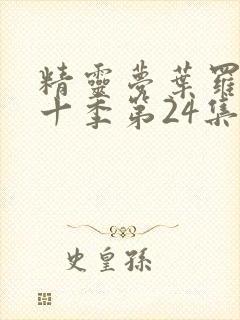 精靈夢葉羅
十季第24集
史皇孫